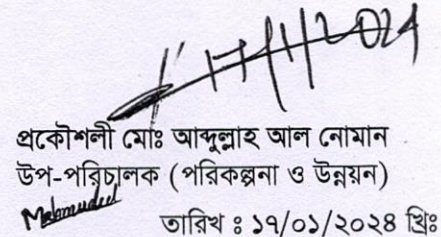 17/1/2024
প্রকৌশলী মোঃ আব্দুল্লাহ আল নোমান
উপ-পরিচালক (পরিকল্পনা ও উন্নয়ন)
Mahmudul
তারিখ ঃ ১৭/০১/২০২৪ খ্রিঃ